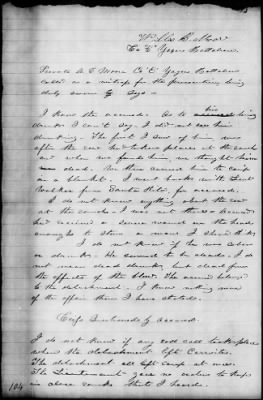 Co "E" Yagers Battalion
Private A. T. Moore Co "E" Yagers Battalion
called as a witness for the prosecution being
duly sworn Says —
I know the accused. As to his being
drunk I can't say. I did not see him
drinking. The first I saw of him was
after the row had taken place at the camp
and when we found him, we thought him
dead. We then carried him to camp
on a blanket. I went back with Lieut
Walker from for accused.
I do not know anything about the row
at the camp. I was not there. Accused
had received a severe wound on the head
enough to stun a man I should think.
I do not know if he was sober
or drunk. He seemed to be dead. I do
not mean dead drunk, but dead from
the effects of the blow. The accused belongs
to the detachment. I know nothing more
of the affair than I have stated.
Cross Examined by accused.
I do not know if any roll call took place
when the detachment left Cerritos.
The detachment all left camp at once.
The Lieutenant gave no orders to keep
in close ranks that I heard.
104